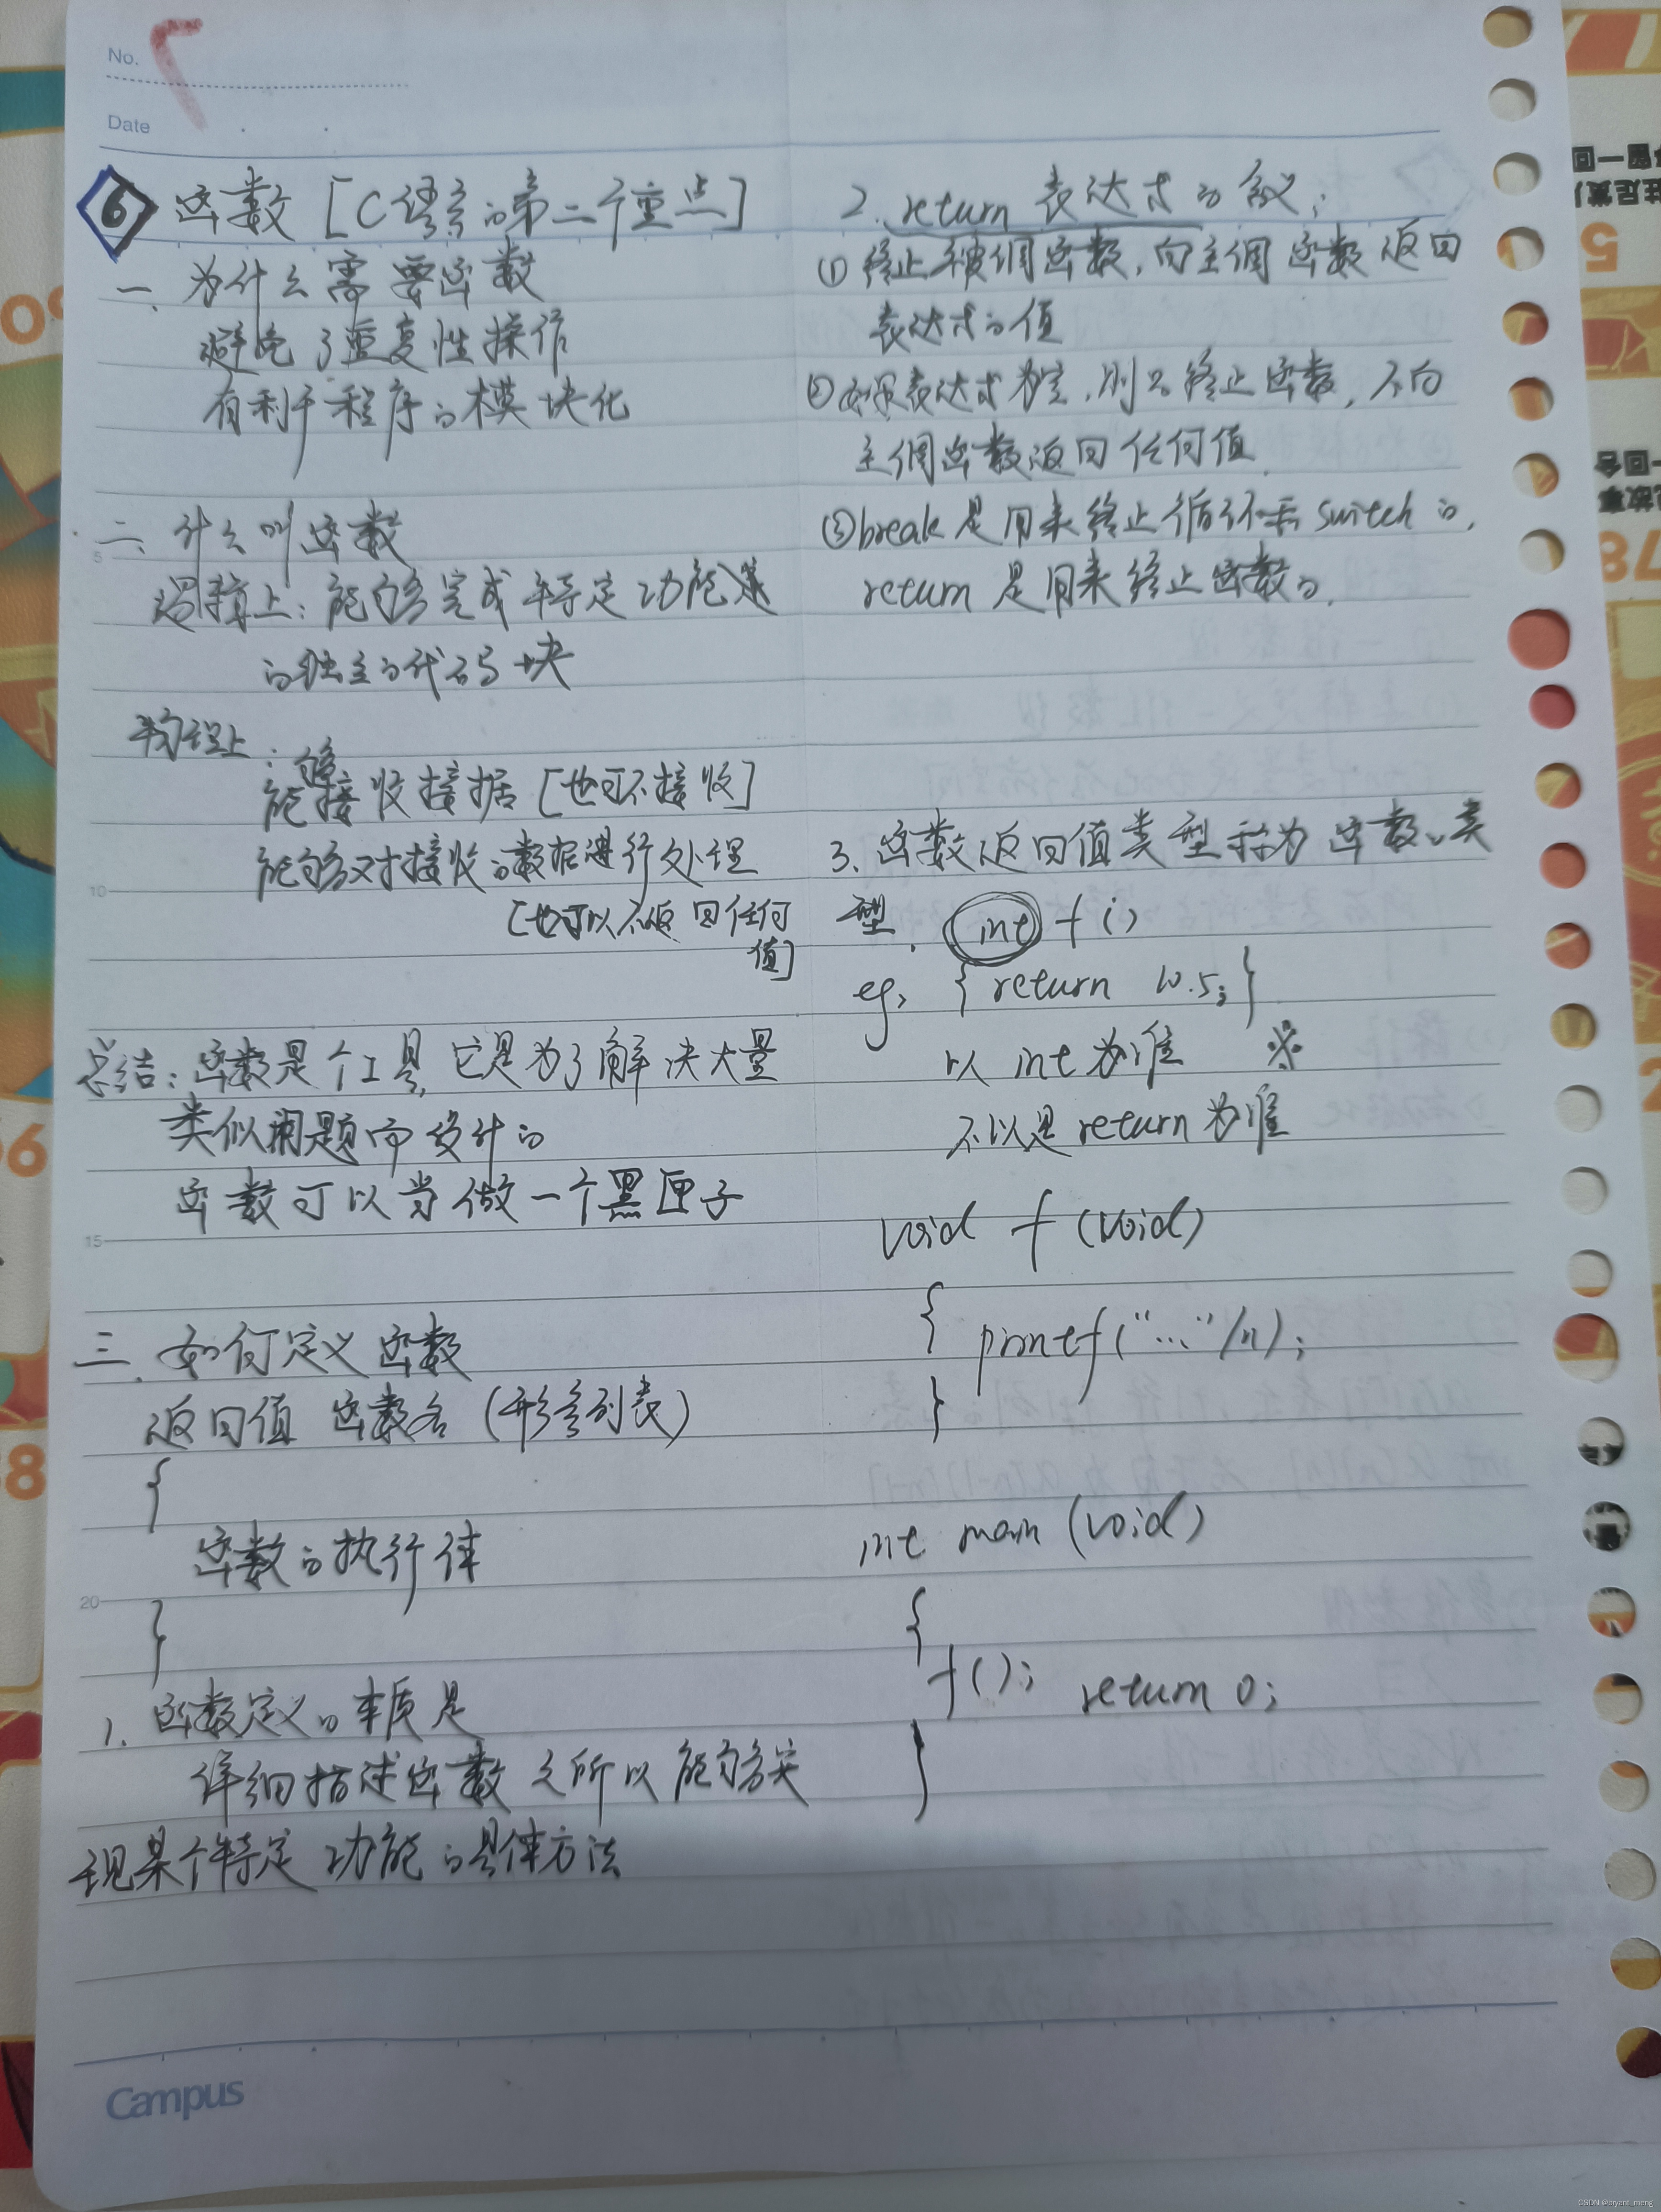 No.
Date
6 函数 [C语言的第二个重点]
一、为什么需要函数
避免了重复性操作
有利于程序的模块化
二、什么叫函数
逻辑上：能够完成特定功能
的独立的代码块
物理上：
能够接收数据 [也可不接收]
能够对接收的数据进行处理
[也可以不返回任何
值]
总结：函数是个工具，它是为了解决大量
类似问题而设计的
函数可以当做一个黑匣子
三、如何定义函数
返回值 函数名 (形参列表)
{
函数的执行体
}
1. 函数定义的本质是
详细描述函数之所以能够实
现某个特定功能的具体方法
2. return 表达式的含义：
① 终止被调函数，向主调函数返回
表达式的值
② 如果表达式为空，则只终止函数，不向
主调函数返回任何值
③ break 是用来终止循环和 switch 的，
return 是用来终止函数的。
3. 函数返回值类型称为函数的类
型. int f()
eg, { return 10.5; }
以 int 为准 ※
不以是 return 为准
void f (void)
{
printf("..."/n);
}
int main (void)
{
f(); return 0;
}
Campus
CSDN @bryant_meng